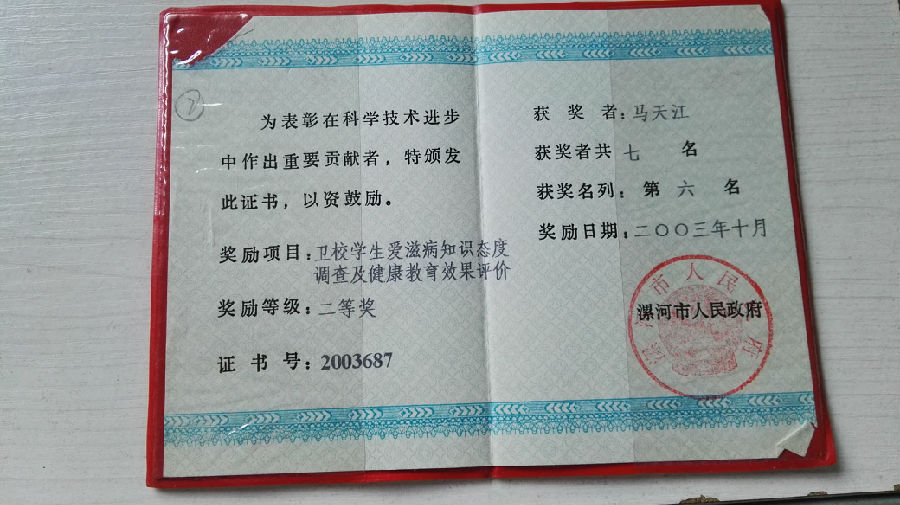 7
为表彰在科学技术进步
中作出重要贡献者，特颁发
此证书，以资鼓励。
奖励项目：卫校学生爱滋病知识态度
调查及健康教育效果评价
奖励等级：二等奖
证书号：2003687
获奖者：马天江
获奖者共七名
获奖名列：第六名
奖励日期：二〇〇三年十月
漯河市人民政府
漯河市人民政府